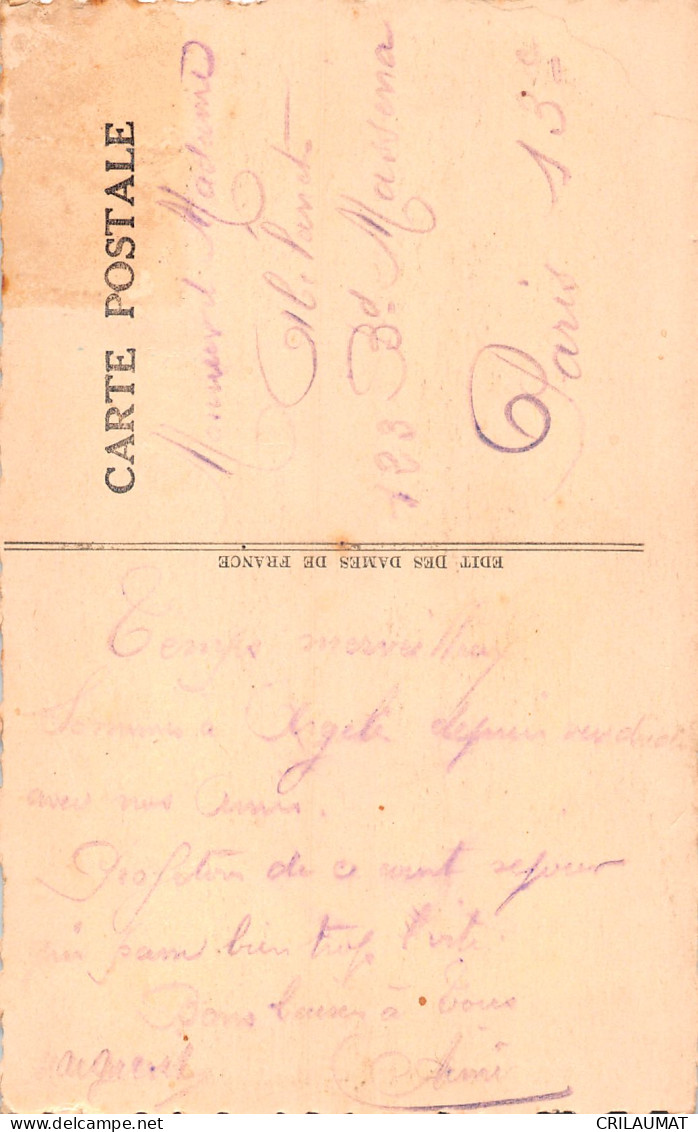 CARTE POSTALE
Monsieur & Madame
123 Bd. Massena
Paris 13e
EDIT DES DAMES DE FRANCE
Temps merveilleux
Sommes à Argelès depuis vendredi
avec nos amis.
Profitons de ce court séjour
qui passe bien trop vite.
Bons baisers à Tous
Aimé
CRILAUMAT